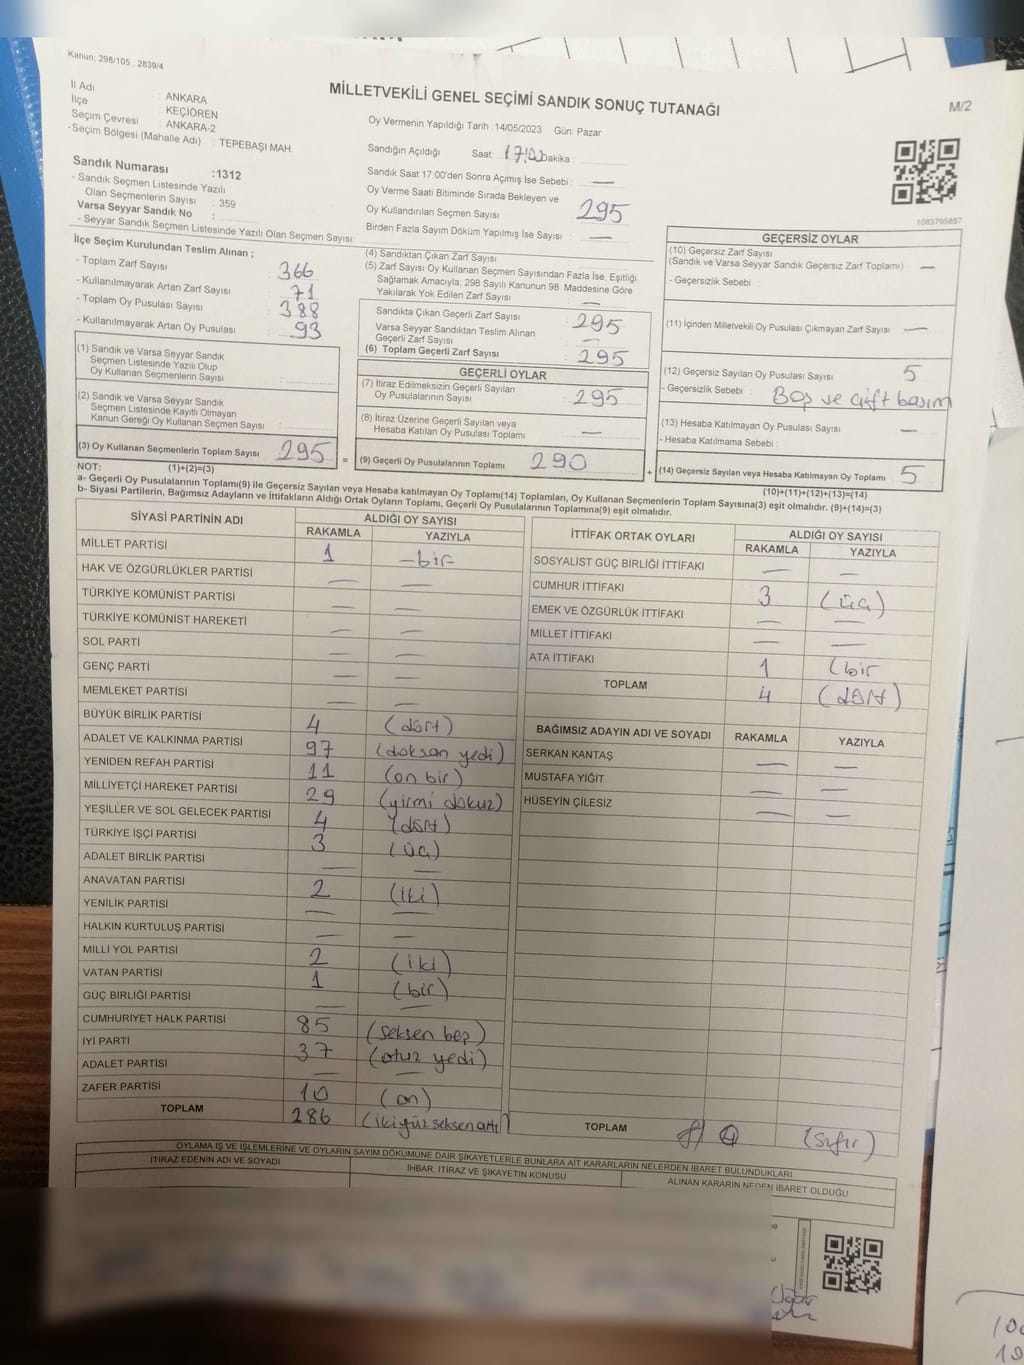 Kanun: 298/105 , 2839/4
MİLLETVEKİLİ GENEL SEÇİMİ SANDIK SONUÇ TUTANAĞI
M/2
İl Adı : ANKARA
İlçe : KEÇİÖREN
Seçim Çevresi : ANKARA-2
Seçim Bölgesi (Mahalle Adı) : TEPEBAŞI MAH.
Sandık Numarası :1312
- Sandık Seçmen Listesinde Yazılı
Olan Seçmenlerin Sayısı : 359
Varsa Seyyar Sandık No :
- Seyyar Sandık Seçmen Listesinde Yazılı Olan Seçmen Sayısı:
Oy Vermenin Yapıldığı Tarih :14/05/2023 Gün: Pazar
Sandığın Açıldığı Saat: Dakika :
Sandık Saat 17:00'den Sonra Açımış İse Sebebi : —
Oy Verme Saati Bitiminde Sırada Bekleyen ve
Oy Kullandırılan Seçmen Sayısı : 295
Birden Fazla Sayım Döküm Yapılmış İse Sayısı : —
1083795857
İlçe Seçim Kurulundan Teslim Alınan ;
- Toplam Zarf Sayısı : 366
- Kullanılmayarak Artan Zarf Sayısı : 71
- Toplam Oy Pusulası Sayısı : 388
- Kullanılmayarak Artan Oy Pusulası : 93
(1) Sandık ve Varsa Seyyar Sandık
Seçmen Listesinde Yazılı Olup
Oy Kullanan Seçmenlerin Sayısı :
(2) Sandık ve Varsa Seyyar Sandık
Seçmen Listesinde Kayıtlı Olmayan
Kanun Gereği Oy Kullanan Seçmen Sayısı :
(3) Oy Kullanan Seçmenlerin Toplam Sayısı 295
(4) Sandıktan Çıkan Zarf Sayısı :
(5) Zarf Sayısı Oy Kullanan Seçmen Sayısından Fazla İse, Eşitliği
Sağlamak Amacıyla; 298 Sayılı Kanunun 98. Maddesine Göre
Yakılarak Yok Edilen Zarf Sayısı : —
Sandıkta Çıkan Geçerli Zarf Sayısı : 295
Varsa Seyyar Sandıktan Teslim Alınan
Geçerli Zarf Sayısı : —
(6) Toplam Geçerli Zarf Sayısı : 295
GEÇERLİ OYLAR
(7) İtiraz Edilmeksizin Geçerli Sayılan
Oy Pusulalarının Sayısı : 295
(8) İtiraz Üzerine Geçerli Sayılan veya
Hesaba Katılan Oy Pusulası Toplamı : —
= (9) Geçerli Oy Pusulalarının Toplamı 290
GEÇERSİZ OYLAR
(10) Geçersiz Zarf Sayısı
(Sandık ve Varsa Seyyar Sandık Geçersiz Zarf Toplamı) : —
- Geçersizlik Sebebi :
(11) İçinden Milletvekili Oy Pusulası Çıkmayan Zarf Sayısı : —
(12) Geçersiz Sayılan Oy Pusulası Sayısı : 5
- Geçersizlik Sebebi : Boş ve çift basım
(13) Hesaba Katılmayan Oy Pusulası Sayısı : —
- Hesaba Katılmama Sebebi :
+ (14) Geçersiz Sayılan veya Hesaba Katılmayan Oy Toplamı 5
NOT: (1)+(2)=(3)
(10)+(11)+(12)+(13)=(14)
a- Geçerli Oy Pusulalarının Toplamı(9) ile Geçersiz Sayılan veya Hesaba katılmayan Oy Toplamı(14) Toplamları, Oy Kullanan Seçmenlerin Toplam Sayısına(3) eşit olmalıdır. (9)+(14)=(3)
b- Siyasi Partilerin, Bağımsız Adayların ve İttifakların Aldığı Ortak Oyların Toplamı, Geçerli Oy Pusulalarının Toplamına(9) eşit olmalıdır.
SİYASİ PARTİNİN ADI ALDIĞI OY SAYISI
RAKAMLA YAZIYLA
MİLLET PARTİSİ 1 —bir—
HAK VE ÖZGÜRLÜKLER PARTİSİ — —
TÜRKİYE KOMÜNİST PARTİSİ — —
TÜRKİYE KOMÜNİST HAREKETİ — —
SOL PARTİ — —
GENÇ PARTİ — —
MEMLEKET PARTİSİ — —
BÜYÜK BİRLİK PARTİSİ 4 (dört)
ADALET VE KALKINMA PARTİSİ 97 (doksan yedi)
YENİDEN REFAH PARTİSİ 11 (on bir)
MİLLİYETÇİ HAREKET PARTİSİ 29 (yirmi dokuz)
YEŞİLLER VE SOL GELECEK PARTİSİ 4 (dört)
TÜRKİYE İŞÇİ PARTİSİ 3 (üç)
ADALET BİRLİK PARTİSİ — —
ANAVATAN PARTİSİ 2 (iki)
YENİLİK PARTİSİ — —
HALKIN KURTULUŞ PARTİSİ — —
MİLLİ YOL PARTİSİ 2 (iki)
VATAN PARTİSİ 1 (bir)
GÜÇ BİRLİĞİ PARTİSİ — —
CUMHURİYET HALK PARTİSİ 85 (seksen beş)
İYİ PARTİ 37 (otuz yedi)
ADALET PARTİSİ — —
ZAFER PARTİSİ 10 (on)
TOPLAM 286 (ikiyüz seksen altı)
İTTİFAK ORTAK OYLARI ALDIĞI OY SAYISI
RAKAMLA YAZIYLA
SOSYALİST GÜÇ BİRLİĞİ İTTİFAKI — —
CUMHUR İTTİFAKI 3 (üç)
EMEK VE ÖZGÜRLÜK İTTİFAKI — —
MİLLET İTTİFAKI — —
ATA İTTİFAKI 1 (bir
TOPLAM 4 (dört)
BAĞIMSIZ ADAYIN ADI VE SOYADI RAKAMLA YAZIYLA
SERKAN KANTAŞ — —
MUSTAFA YİĞİT — —
HÜSEYİN ÇİLESİZ — —
TOPLAM 0 (sıfır)
OYLAMA İŞ VE İŞLEMLERİNE VE OYLARIN SAYIM DÖKÜMÜNE DAİR ŞİKAYETLERLE BUNLARA AİT KARARLARIN NELERDEN İBARET BULUNDUKLARI
İTİRAZ EDENİN ADI VE SOYADI İHBAR, İTİRAZ VE ŞİKAYETİN KONUSU ALINAN KARARIN NEDEN İBARET OLDUĞU